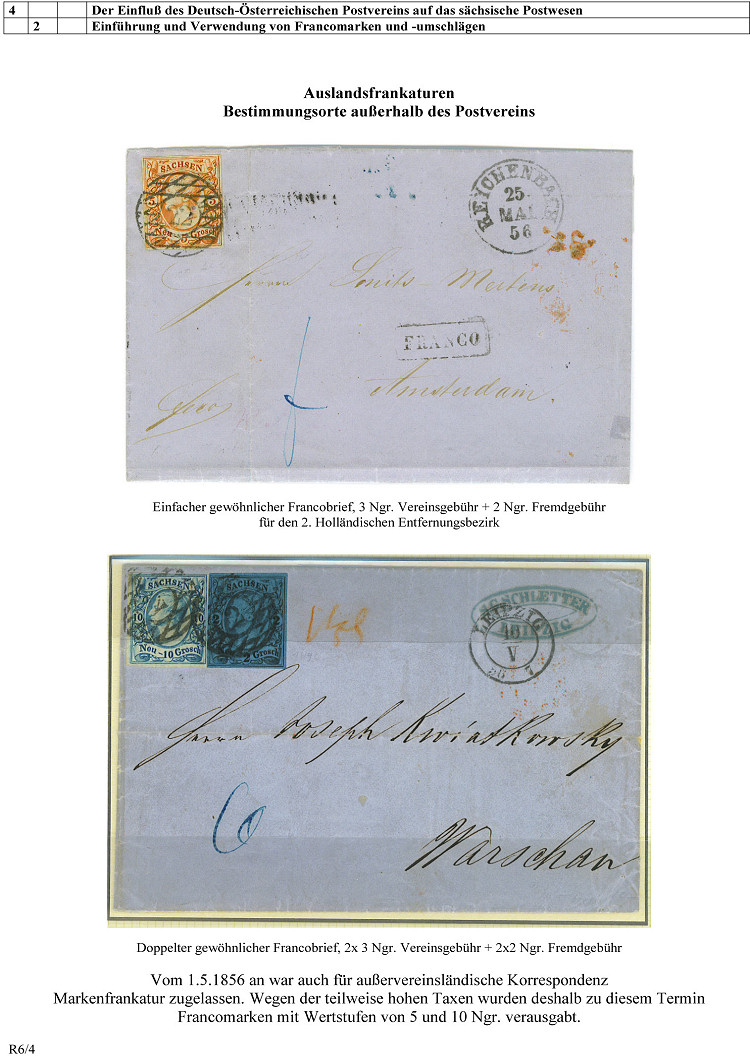 4 Der Einfluß des Deutsch-Österreichischen Postvereins auf das sächsische Postwesen
2 Einführung und Verwendung von Francomarken und -umschlägen
Auslandsfrankaturen
Bestimmungsorte außerhalb des Postvereins
SACHSEN
Neu - 5 Grosch
REICHENBACH
25
MAI
56
Herrn Smits-Mertens
FRANCO
Amsterdam.
Einfacher gewöhnlicher Francobrief, 3 Ngr. Vereinsgebühr + 2 Ngr. Fremdgebühr
für den 2. Holländischen Entfernungsbezirk
SACHSEN
10 10
Neu - 10 Grosch
SACHSEN
2 2
2 Grosch
LEIPZIG
V
Herrn Joseph Kwiatkowsky
6
Warschau
Doppelter gewöhnlicher Francobrief, 2x 3 Ngr. Vereinsgebühr + 2x2 Ngr. Fremdgebühr
Vom 1.5.1856 an war auch für außervereinsländische Korrespondenz
Markenfrankatur zugelassen. Wegen der teilweise hohen Taxen wurden deshalb zu diesem Termin
Francomarken mit Wertstufen von 5 und 10 Ngr. verausgabt.
R6/4